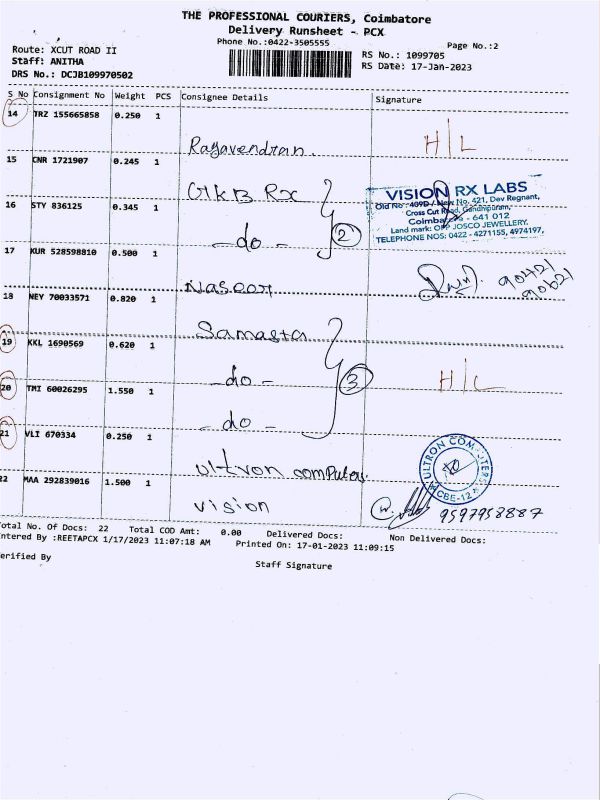 THE PROFESSIONAL COURIERS, Coimbatore
Delivery Runsheet - PCX
Phone No.:0422-3505555
Page No.:2
Route: XCUT ROAD II
Staff: ANITHA
DRS No.: DCJB109970502
RS No.: 1099705
RS Date: 17-Jan-2023
S No Consignment No Weight PCS Consignee Details Signature
14 TRZ 155665858 0.250 1
Ragavendran. H|L
15 CNR 1721907 0.245 1
GKB RX
16 STY 836125 0.345 1
-do- 2
VISION RX LABS
Old No: 409D / New No. 421, Dev Regnant,
Cross Cut Road, Gandhipuram,
Coimbatore - 641 012
Land mark: OPP JOSCO JEWELLERY.
TELEPHONE NOS: 0422 - 4271155, 4974197,
17 KUR 528598810 0.500 1
Naseer
90421
90621
18 NEY 70033571 0.820 1
Samasta
19 KKL 1690569 0.620 1
-do- 3 H|L
20 TMI 60026295 1.550 1
-do-
21 VLI 670334 0.250 1
ultron computers
ULTRON COMPUTERS
CBE-12
22 MAA 292839016 1.500 1
vision
9597958887
Total No. Of Docs: 22 Total COD Amt: 0.00 Delivered Docs: Non Delivered Docs:
Entered By :REETAPCX 1/17/2023 11:07:18 AM Printed On: 17-01-2023 11:09:15
Verified By
Staff Signature